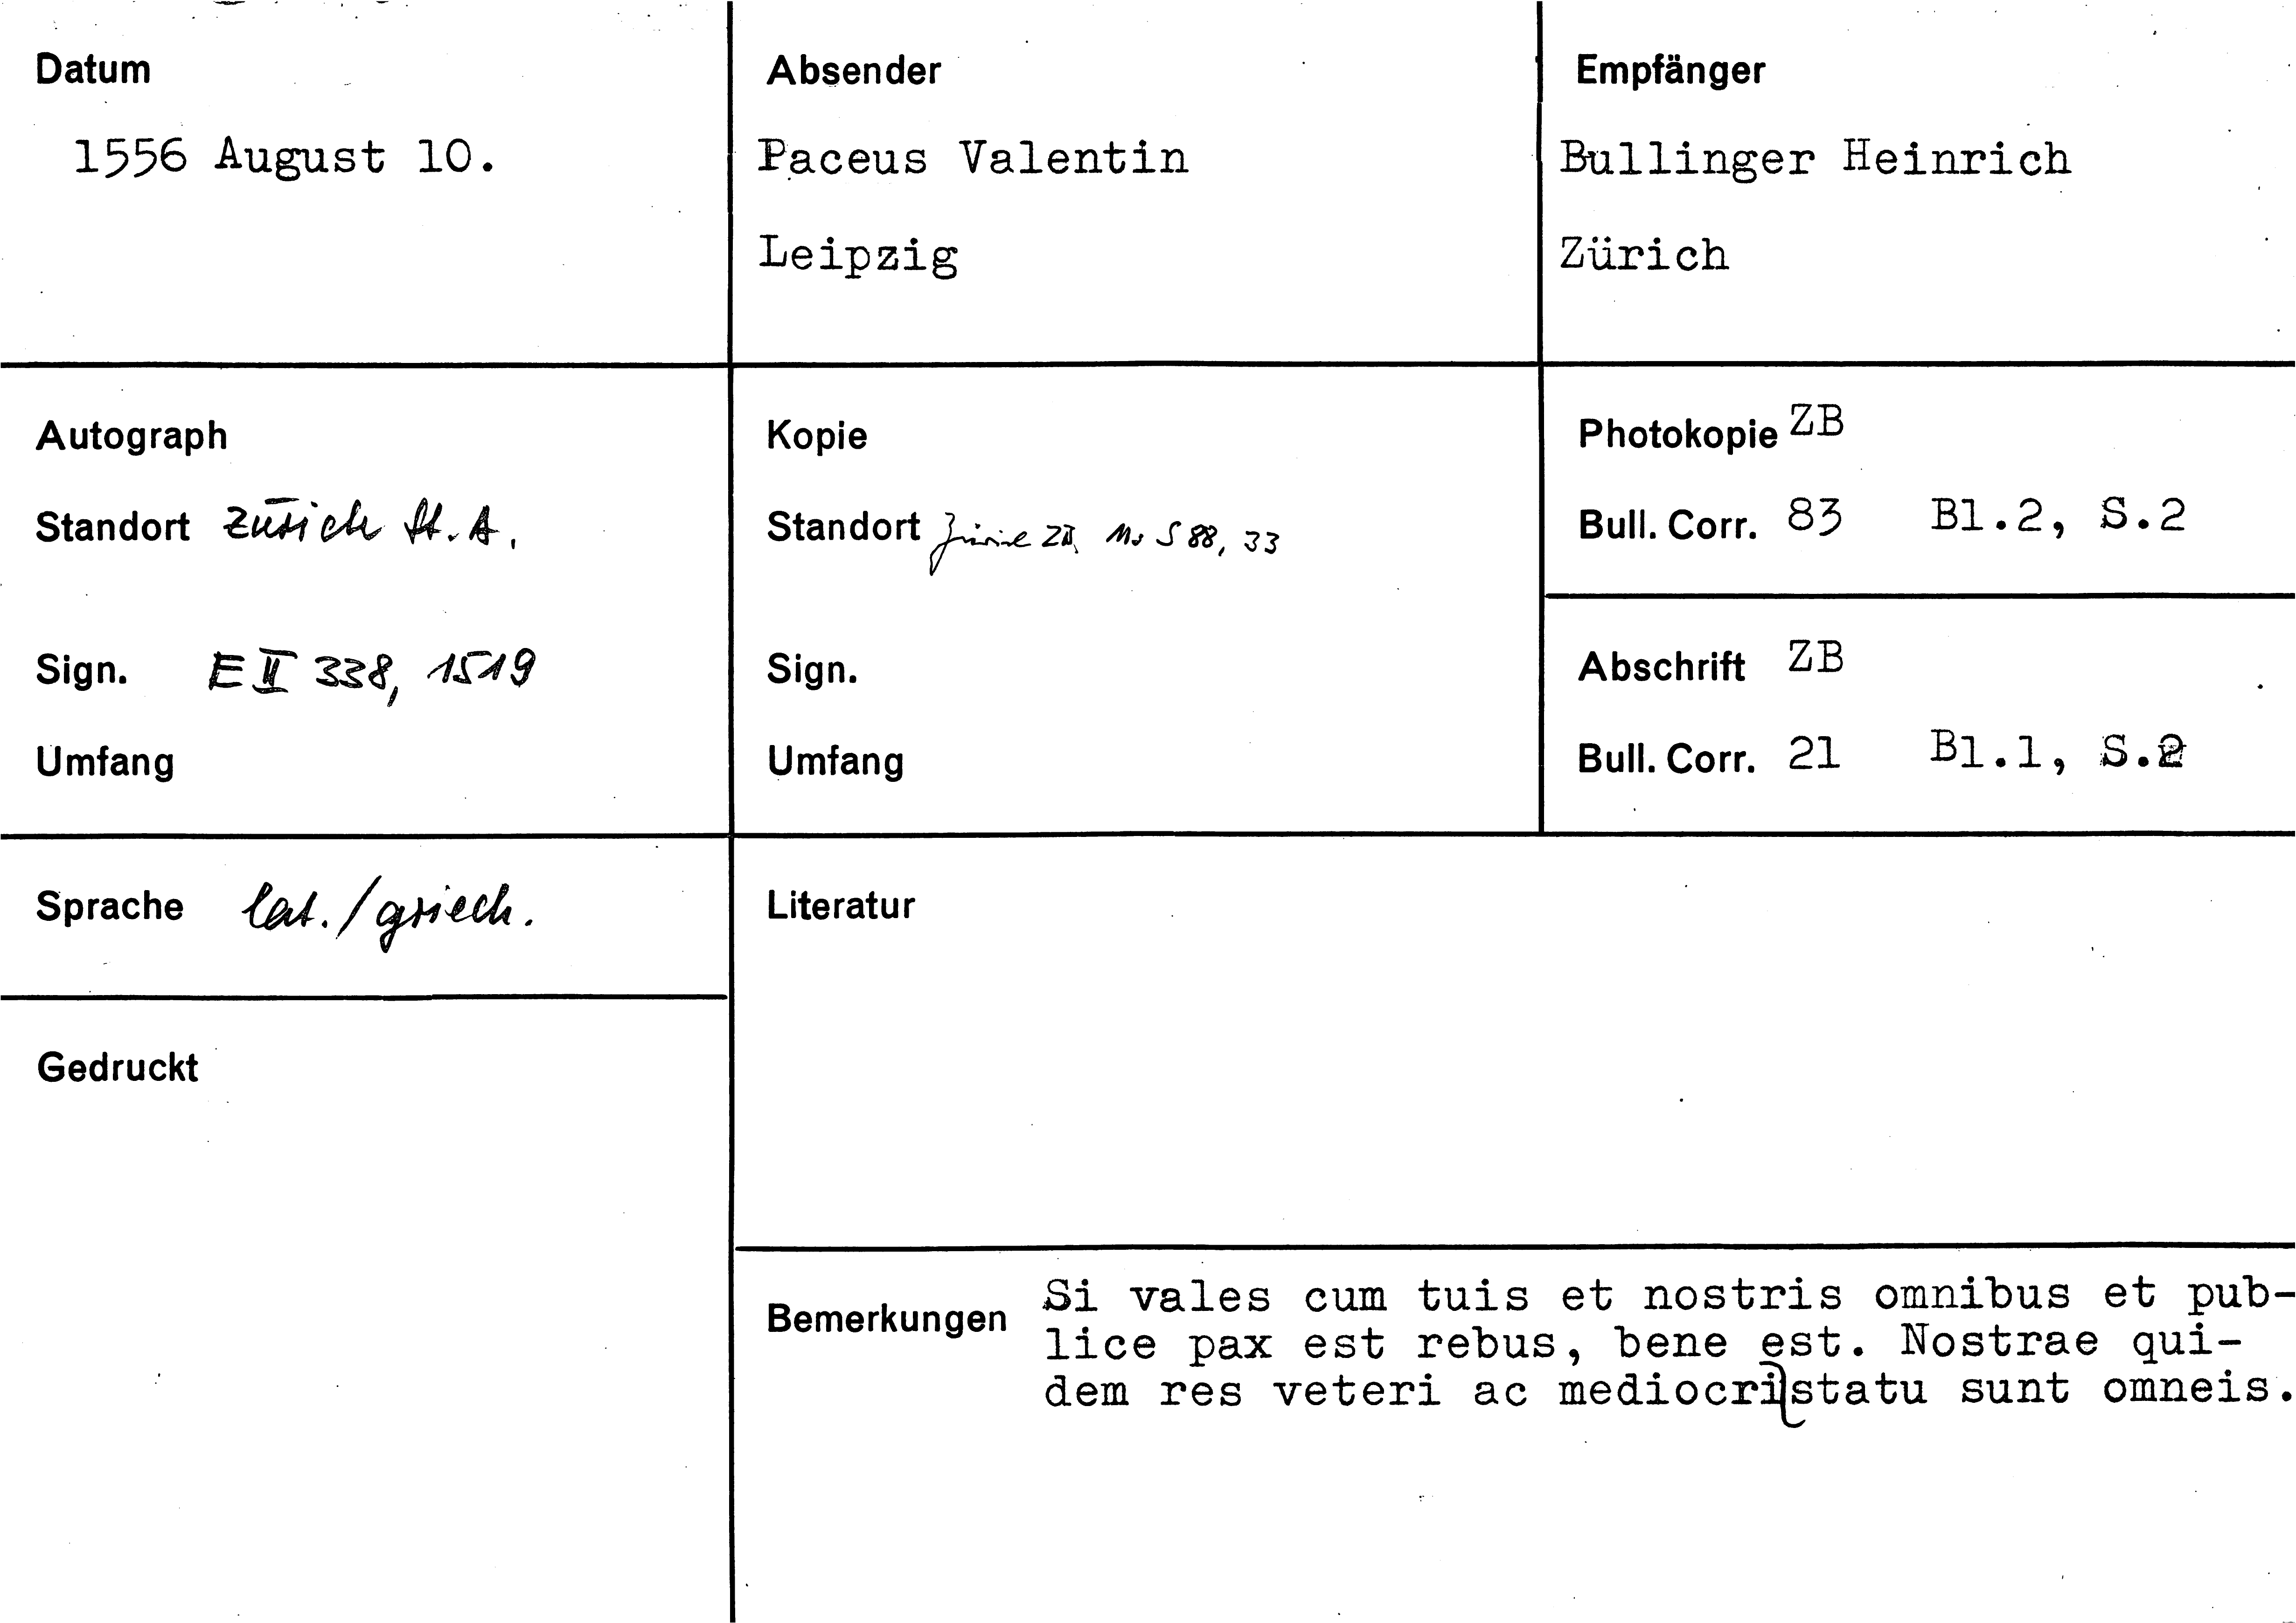 Datum
1556 August 10.
Absender
Paceus Valentin
Leipzig
Empfänger
Bullinger Heinrich
Zürich
Autograph
Standort Zürich St. A.
Sign. E II 338, 1519
Umfang
Kopie
Standort Zürich ZB, Ms S 88, 33
Sign.
Umfang
Photokopie ZB
Bull. Corr. 83 Bl.2, S.2
Abschrift ZB
Bull. Corr. 21 Bl.1, S.2
Sprache lat./griech.
Gedruckt
Literatur
Bemerkungen Si vales cum tuis et nostris omnibus et pub-
lice pax est rebus, bene est. Nostrae qui-
dem res veteri ac mediocri statu sunt omneis.